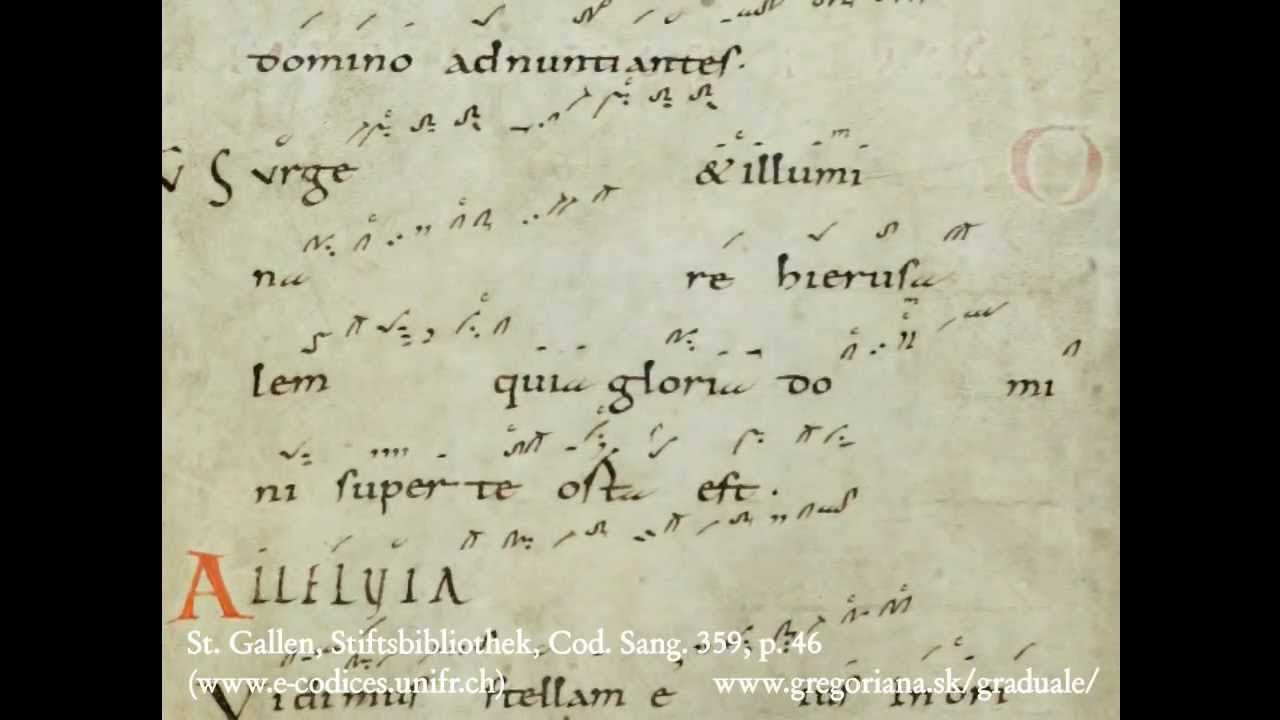 domino adnuntiantes.
V Surge & illumi
na re hierusa
lem quia gloria do mi
ni super te orta est.
ALLELVIA
Vidimus stellam e ius in ori
St. Gallen, Stiftsbibliothek, Cod. Sang. 359, p. 46
(www.e-codices.unifr.ch) www.gregoriana.sk/graduale/